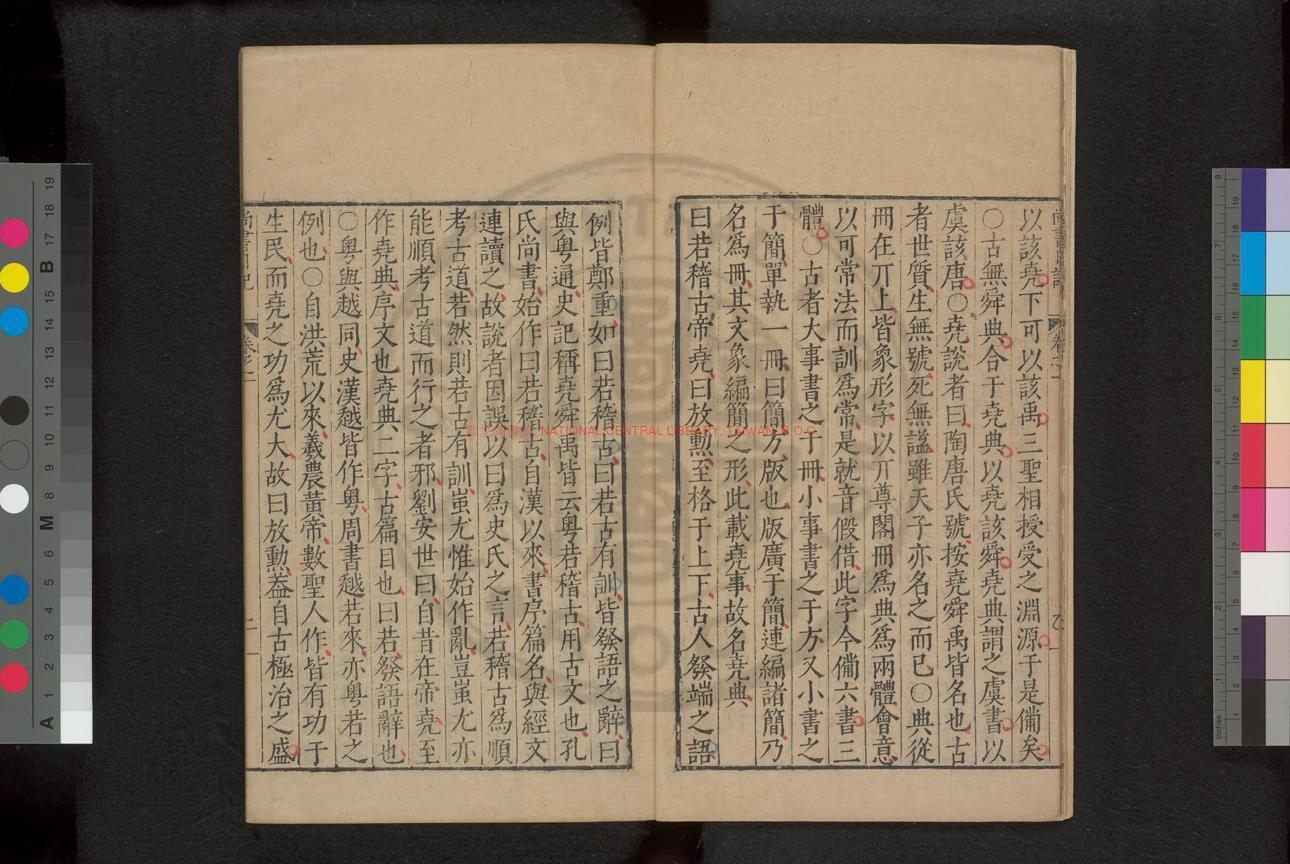 以該堯下可以該禹三聖相授受之淵源于是備矣
○古無舜典合于堯典以堯該舜堯典謂之虞書以
虞該唐○堯說者曰陶唐氏號按堯舜禹皆名也古
者世質生無號死無諡雖天子亦名之而已○典從
冊在丌上皆象形字以丌尊閣冊爲典爲兩體會意
以可常法而訓爲常是就音假借此字今備六書三
體○古者大事書之于冊小事書之于方又小書之
于簡單執一冊曰簡方版也版廣于簡連編諸簡乃
名爲冊其文象編簡之形此載堯事故名堯典
曰若稽古帝堯曰放勲至格于上下古人發端之語
例皆鄭重如曰若稽古曰若古有訓皆發語之辭曰
與粤通史記稱堯舜禹皆云粤若稽古用古文也孔
氏尚書始作曰若稽古自漢以來書序篇名與經文
連讀之故說者因誤以曰爲史氏之言若稽古爲順
考古道若然則若古有訓蚩尤惟始作亂豈蚩尤亦
能順考古道而行之者邪劉安世曰自昔在帝堯至
作堯典序文也堯典二字古篇目也曰若發語辭也
○粤與越同史漢越皆作粤周書越若來亦粤若之
例也○自洪荒以來羲農黃帝數聖人作皆有功于
生民而堯之功爲尤大故曰放勲葢自古極治之盛
尚書日記
卷之一
二
NATIONAL CENTRAL LIBRARY, TAIWAN, R.O.C